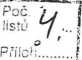 Poč.
listů 4.
Příloh